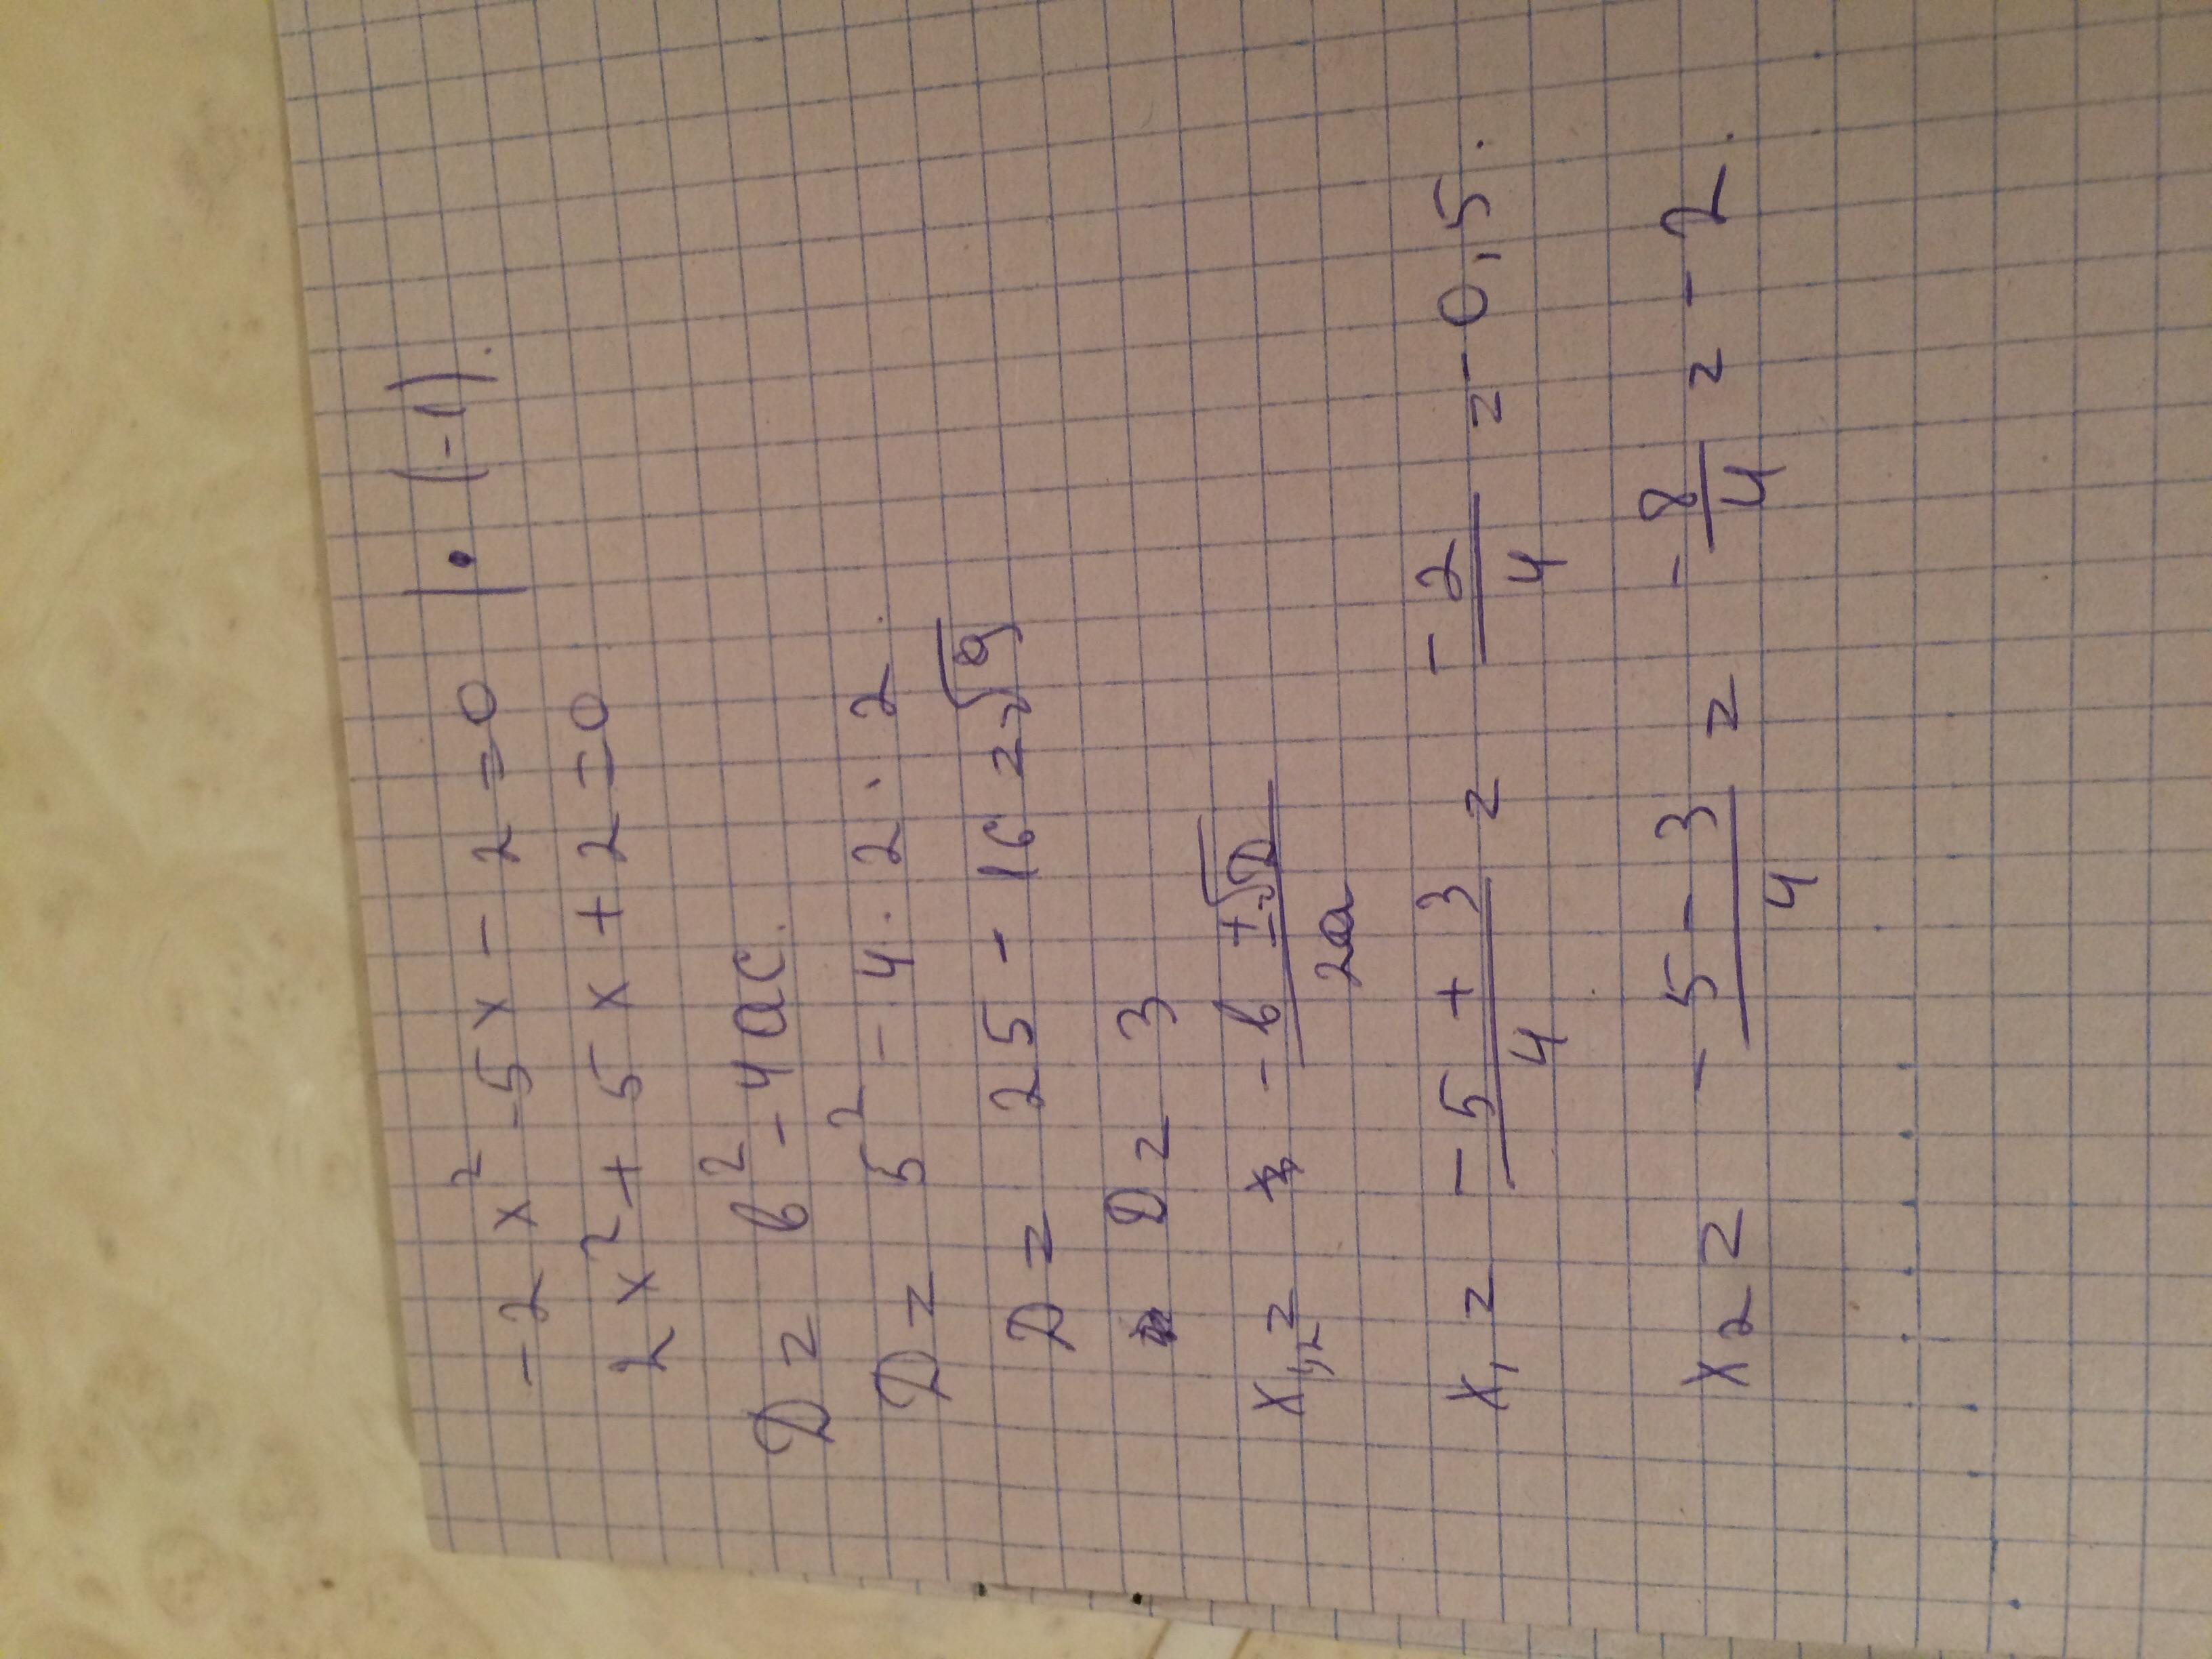 -2x² -5x - 2 = 0 | • (-1).
2x² + 5x + 2 = 0
D = b² - 4ac.
D = 5² - 4 · 2 · 2
D = 25 - 16 = √9
D = 3
x₁,₂ = -b ± √D / 2a
x₁ = -5 + 3 / 4 = -2/4 = -0,5.
x₂ = -5 - 3 / 4 = -8/4 = -2.